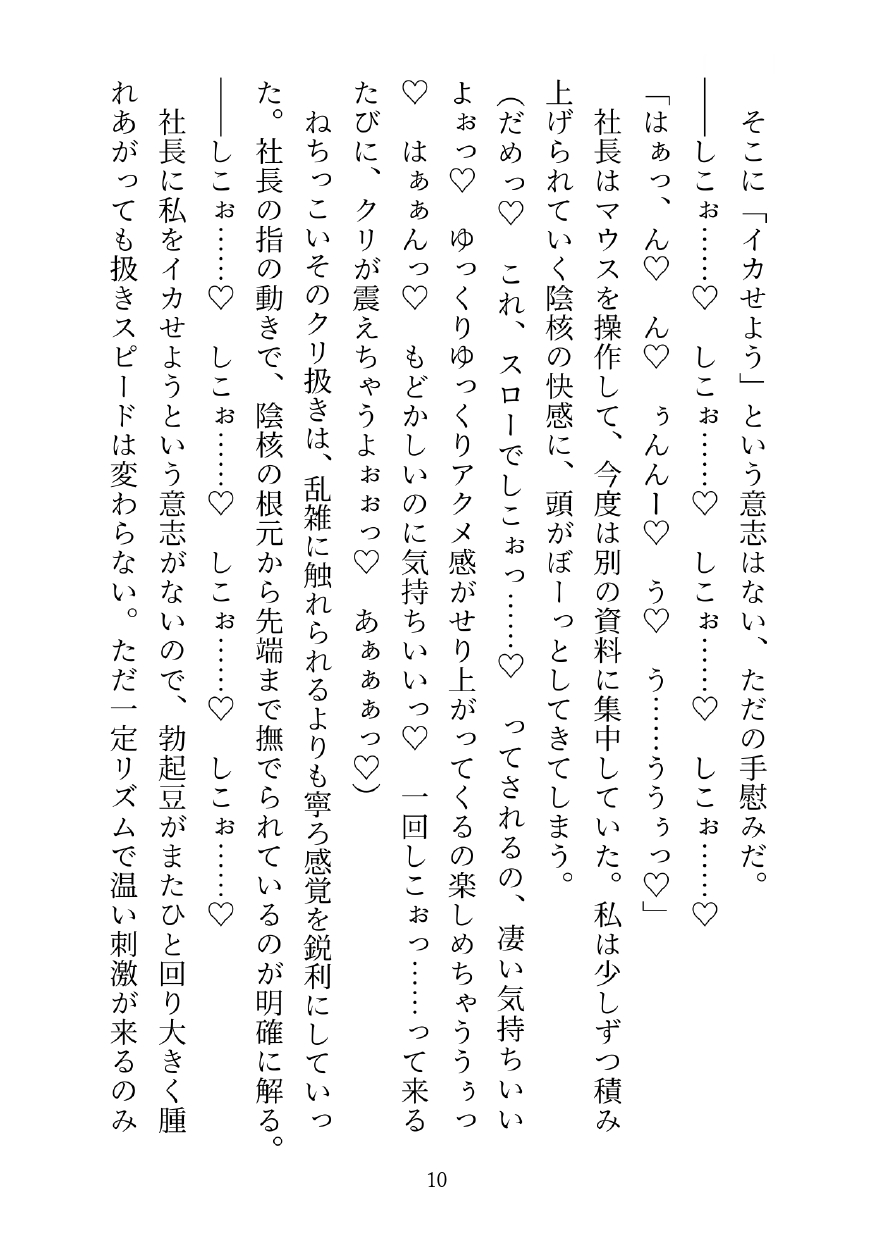 そこに「イカせよう」という意志はない、ただの手慰みだ。
――しこぉ……♡　しこぉ……♡　しこぉ……♡　しこぉ……♡
「はぁっ、ん♡　ん♡　ぅんんー♡　う♡　う……ううぅっ♡」
社長はマウスを操作して、今度は別の資料に集中していた。私は少しずつ積み
上げられていく陰核の快感に、頭がぼーっとしてきてしまう。
（だめっ♡　これ、スローでしこぉっ……♡　ってされるの、凄い気持ちいい
よぉっ♡　ゆっくりゆっくりアクメ感がせり上がってくるの楽しめちゃううぅっ
♡　はぁぁんっ♡　もどかしいのに気持ちいいっ♡　一回しこぉっ……って来る
たびに、クリが震えちゃうよぉぉっ♡　あぁぁぁっ♡）
ねちっこいそのクリ扱きは、乱雑に触れられるよりも寧ろ感覚を鋭利にしていっ
た。社長の指の動きで、陰核の根元から先端まで撫でられているのが明確に解る。
――しこぉ……♡　しこぉ……♡　しこぉ……♡　しこぉ……♡
社長に私をイカせようという意志がないので、勃起豆がまたひと回り大きく腫
れあがっても扱きスピードは変わらない。ただ一定リズムで温い刺激が来るのみ
10